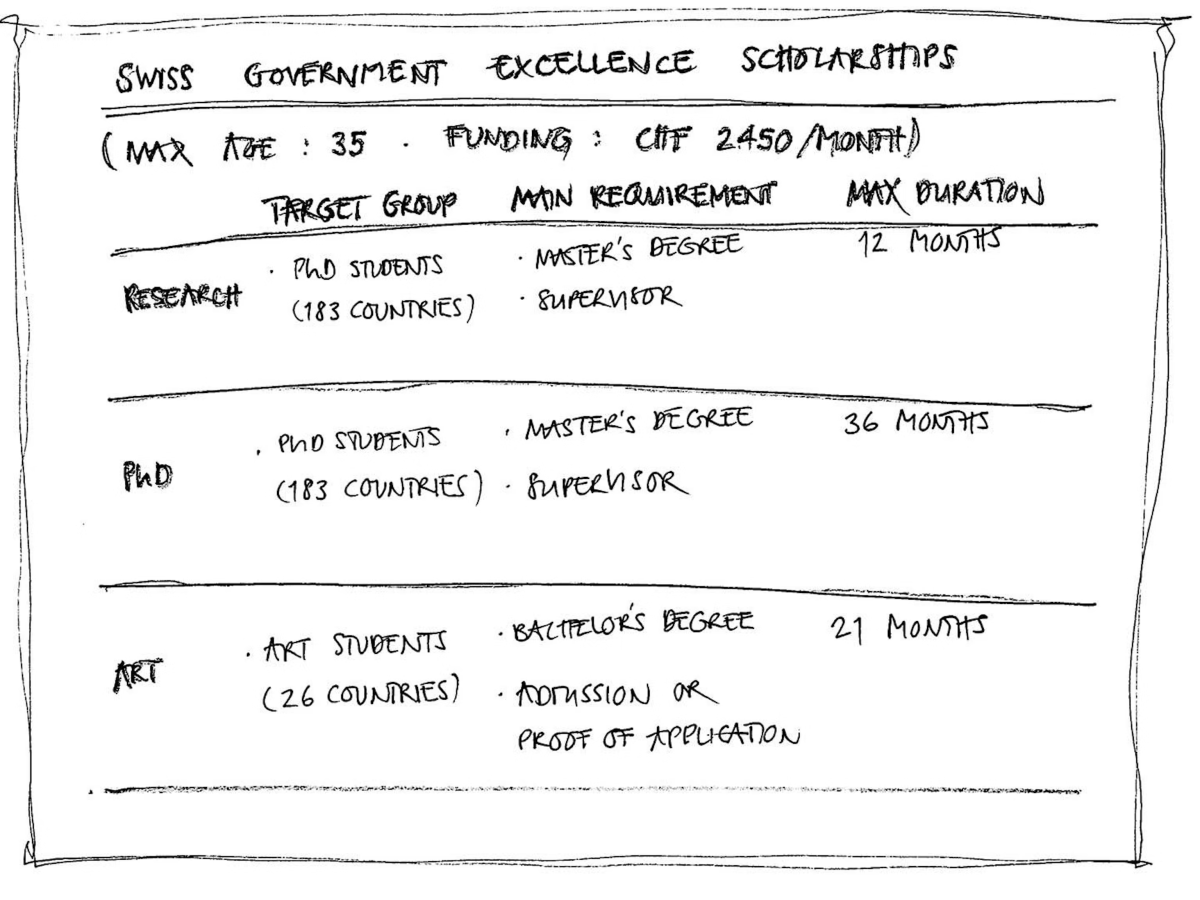 SWISS GOVERNMENT EXCELLENCE SCHOLARSHIPS
(MAX AGE : 35 · FUNDING : CHF 2450/MONTH)
TARGET GROUP MAIN REQUIREMENT MAX DURATION
RESEARCH
· PhD STUDENTS
(183 COUNTRIES)
· MASTER'S DEGREE
· SUPERVISOR
12 MONTHS
PhD
· PhD STUDENTS
(183 COUNTRIES)
· MASTER'S DEGREE
· SUPERVISOR
36 MONTHS
ART
· ART STUDENTS
(26 COUNTRIES)
· BACHELOR'S DEGREE
· ADMISSION OR
PROOF OF APPLICATION
21 MONTHS